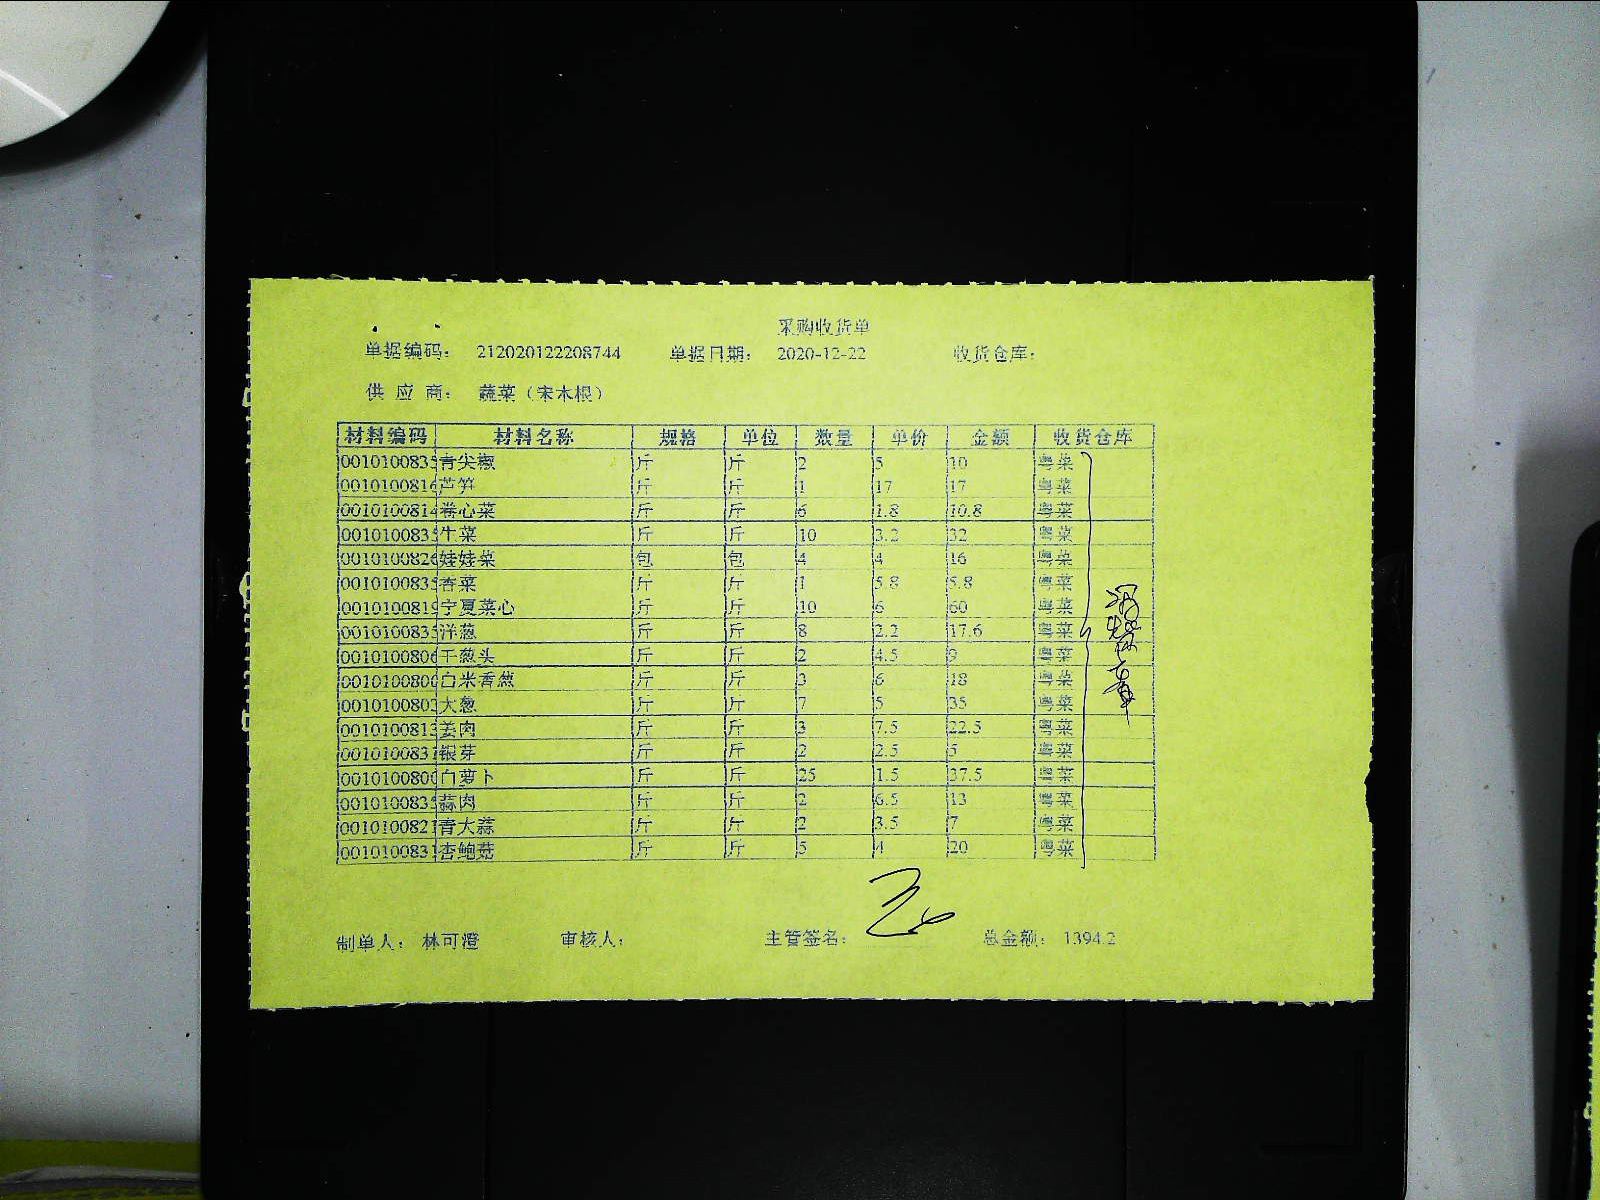 采购收货单
单据编码： 212020122208744 单据日期： 2020-12-22 收货仓库：
供 应 商： 蔬菜（宋木根）
材料编码 材料名称 规格 单位 数量 单价 金额 收货仓库
001010083 青尖椒 斤 斤 2 5 10 粤菜
001010081 芦笋 斤 斤 1 17 17 粤菜
001010081 卷心菜 斤 斤 6 1.8 10.8 粤菜
001010083 生菜 斤 斤 10 3.2 32 粤菜
001010082 娃娃菜 包 包 4 4 16 粤菜
001010083 香菜 斤 斤 1 5.8 5.8 粤菜
001010081 宁夏菜心 斤 斤 10 6 60 粤菜
001010083 洋葱 斤 斤 8 2.2 17.6 粤菜
001010080 干葱头 斤 斤 2 4.5 9 粤菜
001010080 白米香葱 斤 斤 3 6 18 粤菜
001010080 大葱 斤 斤 7 5 35 粤菜
001010081 姜肉 斤 斤 3 7.5 22.5 粤菜
001010083 银芽 斤 斤 2 2.5 5 粤菜
001010080 白萝卜 斤 斤 25 1.5 37.5 粤菜
001010083 蒜肉 斤 斤 2 6.5 13 粤菜
001010082 青大蒜 斤 斤 2 3.5 7 粤菜
001010083 杏鲍菇 斤 斤 5 4 20 粤菜
制单人： 林可澄 审核人： 主管签名： 总金额： 1394.2